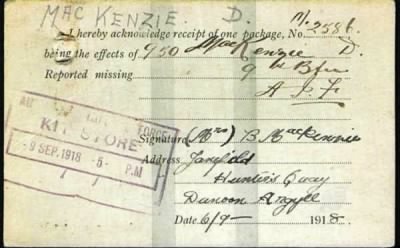 MAC KENZIE. D.
I hereby acknowledge receipt of one package, No. 2586
being the effects of 950 MacKenzie D.
Reported missing 9th Bn
A.I.F
FORCE
KIT STORE
9 SEP. 1918 -5- P.M
Signature (Mrs) B. MacKenzie
Address
Hunter's Quay
Dunoon Argyll
Date 6/9- 1918.